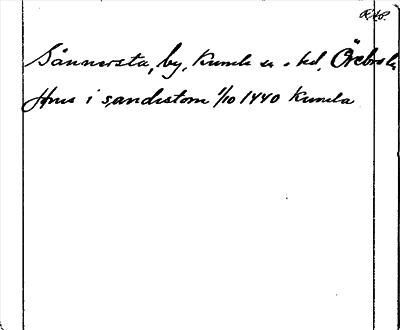 Sånnersta, by, Kumla sn o. hd, Örebro l.
Hus i sandistom 1/10 1440 Kumla